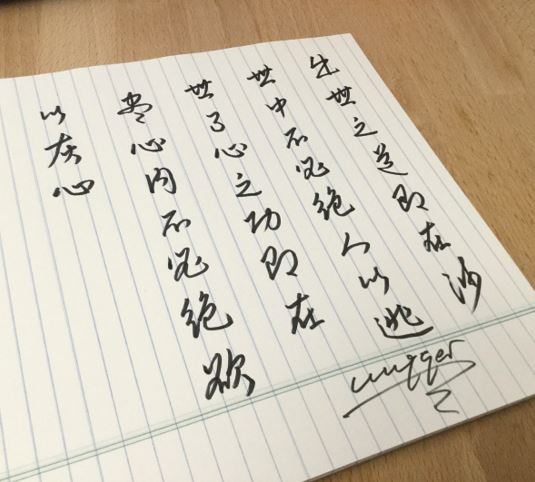 出世之道即在涉
世中不必绝人以逃
世了心之功即在
尽心内不必绝欲
以灰心